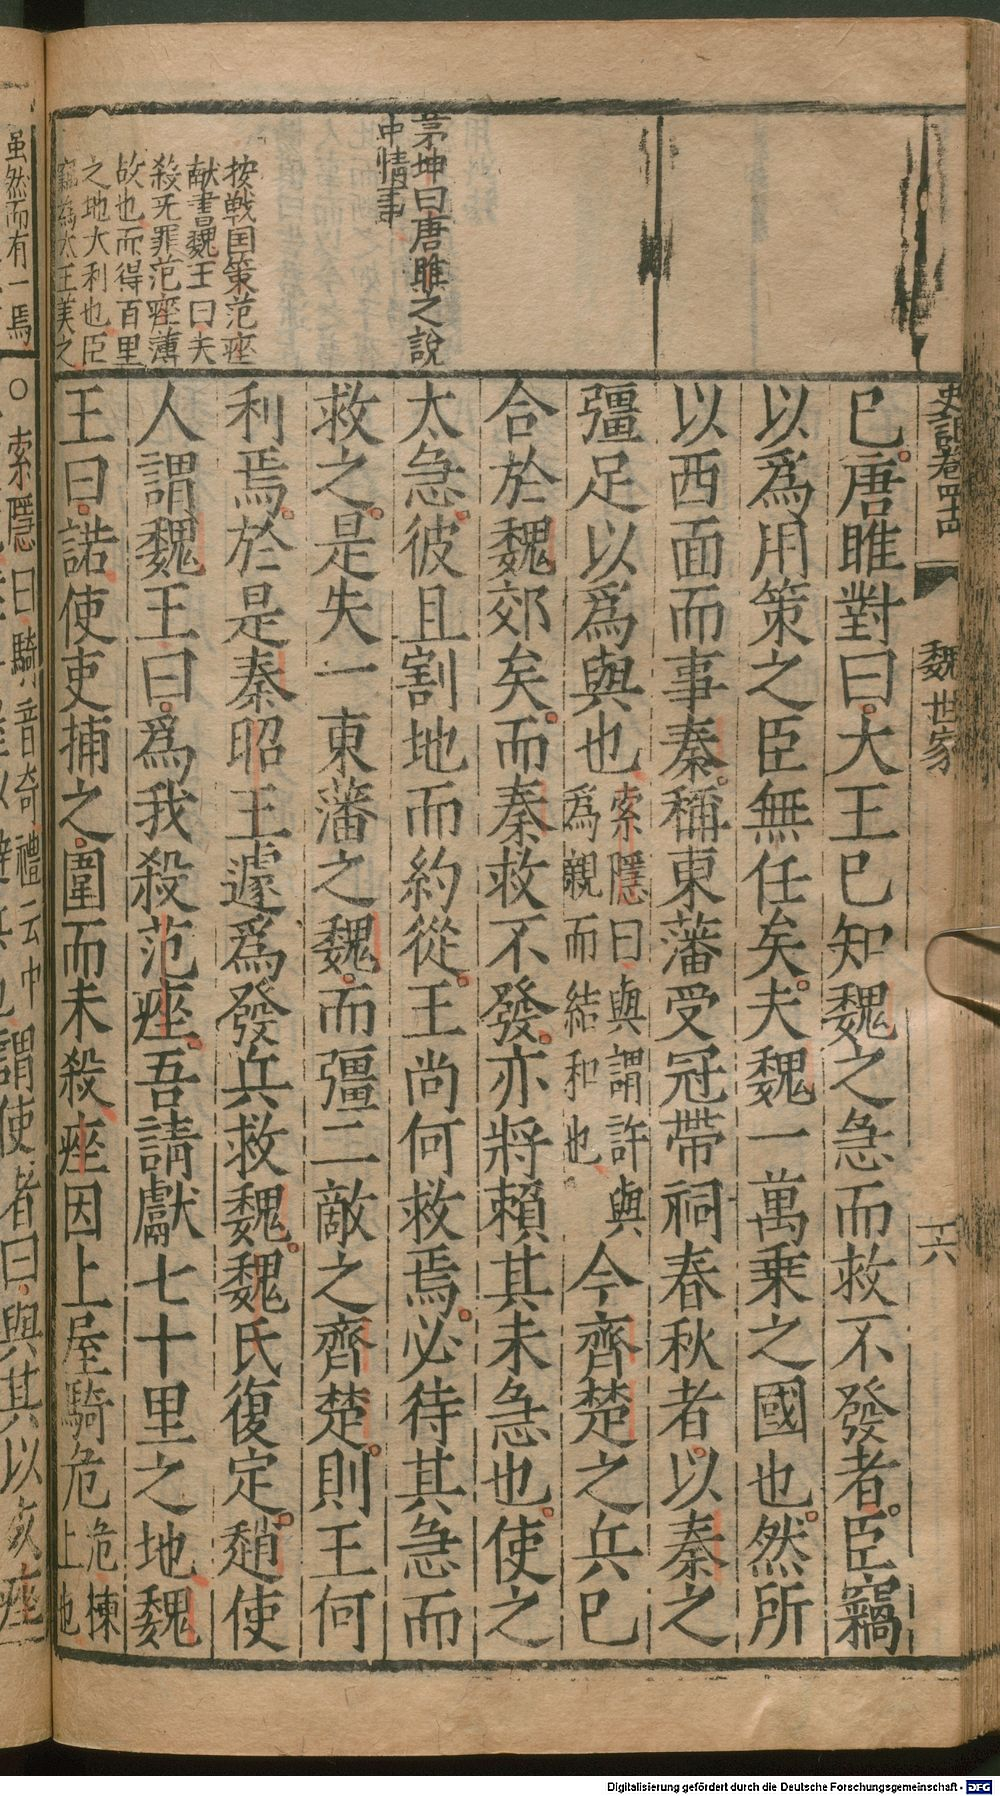 史記卷四十四
魏世家
十六
已唐睢對曰大王已知魏之急而救不發者臣竊
以爲用策之臣無任矣夫魏一萬乗之國也然所
以西面而事秦稱東藩受冠帶祠春秋者以秦之
彊足以爲與也索隱曰與謂許與爲親而結和也今齊楚之兵已
合於魏郊矣而秦救不發亦將賴其未急也使之
太急彼且割地而約從王尚何救焉必待其急而
救之是失一東藩之魏而彊二敵之齊楚則王何
利焉於是秦昭王遽爲發兵救魏魏氏復定趙使
人謂魏王曰爲我殺范痤吾請獻七十里之地魏
王曰諾使吏捕之圍而未殺痤因上屋騎危危棟上也
茅坤曰唐睢之說
中情事
按戰国策范痤
献書魏王曰夫
殺无罪范痤薄
故也而得百里
之地大利也臣
竊為大王美之
虽然而有一焉
○索隱曰騎音奇禮云中
謂使者曰與其以
Digitalisierung gefördert durch die Deutsche Forschungsgemeinschaft - DFG